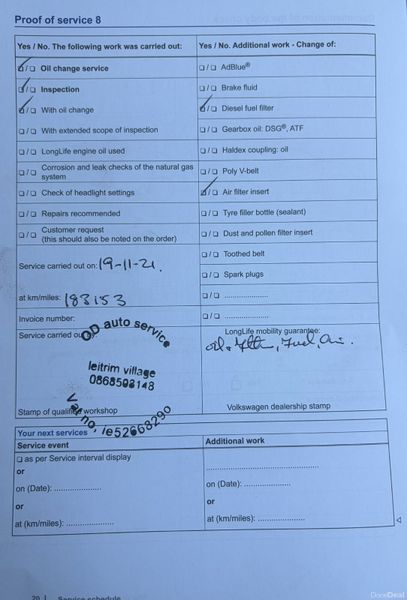 Proof of service 8
Yes / No. The following work was carried out:
☑/❑ Oil change service
☑/❑ Inspection
☑/❑ With oil change
❑/❑ With extended scope of inspection
❑/❑ LongLife engine oil used
❑/❑ Corrosion and leak checks of the natural gas
system
❑/❑ Check of headlight settings
❑/❑ Repairs recommended
❑/❑ Customer request
(this should also be noted on the order)
Service carried out on: 19-11-21.
at km/miles: 183153
Invoice number:
Service carried ou
OD auto service
leitrim village
0868502148
Vat no, ie52668290
Stamp of qualified workshop
Yes / No. Additional work - Change of:
❑/❑ AdBlue®
❑/❑ Brake fluid
☑/❑ Diesel fuel filter
❑/❑ Gearbox oil: DSG®, ATF
❑/❑ Haldex coupling: oil
❑/❑ Poly V-belt
☑/❑ Air filter insert
❑/❑ Tyre filler bottle (sealant)
❑/❑ Dust and pollen filter insert
❑/❑ Toothed belt
❑/❑ Spark plugs
❑/❑ ....................
❑/❑ ....................
LongLife mobility guarantee:
oil & filter, Fuel, Air.
Volkswagen dealership stamp
Your next services
Service event
❑ as per Service interval display
or
on (Date): ....................
or
at (km/miles): ....................
Additional work
................................
on (Date): ....................
or
at (km/miles): ....................
20 | Service schedule
DoneDeal